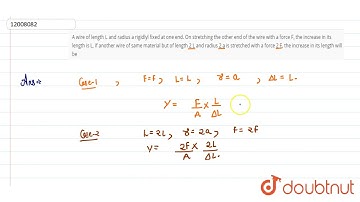 12008082
A wire of length L and radius a rigidly! fixed at one end. On stretching the other end of the wire with a force F, the increase in
its length is L. If another wire of same material but of length 2 L and radius 2 a is stretched with a force 2 F, the increase in its length will
be
Ans:- Case-1 , F=F , L=L , r=a , ΔL=L.
Y = F/A × L/ΔL
Case-2 L=2L , r=2a , F=2F
Y = 2F/A × 2L/ΔL.
doubtnut